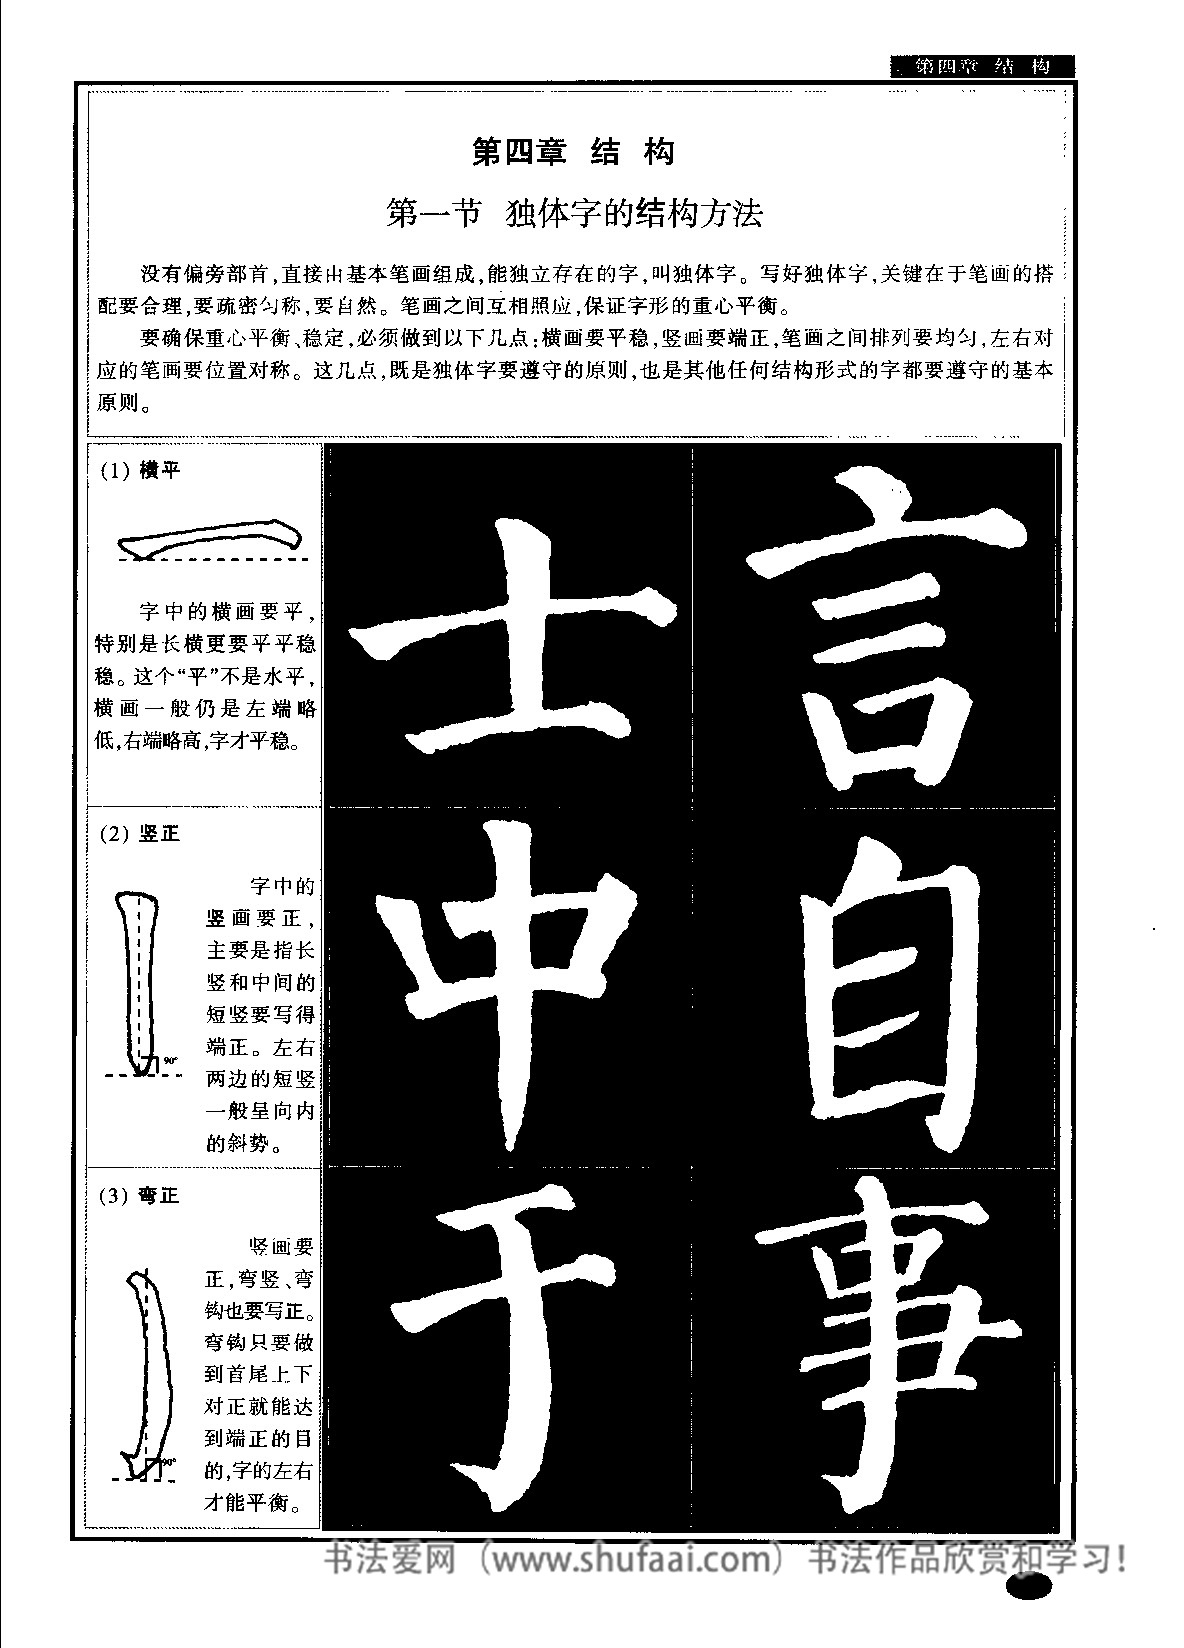 第四章 结 构
第四章 结 构
第一节 独体字的结构方法
没有偏旁部首,直接由基本笔画组成,能独立存在的字,叫独体字。写好独体字,关键在于笔画的搭
配要合理,要疏密匀称,要自然。笔画之间互相照应,保证字形的重心平衡。
要确保重心平衡、稳定,必须做到以下几点:横画要平稳,竖画要端正,笔画之间排列要均匀,左右对
应的笔画要位置对称。这几点,既是独体字要遵守的原则,也是其他任何结构形式的字都要遵守的基本
原则。
(1) 横平
字中的横画要平,
特别是长横更要平平稳
稳。这个“平”不是水平,
横画一般仍是左端略
低,右端略高,字才平稳。
士 言
(2) 竖正
字中的
竖画要正,
主要是指长
竖和中间的
短竖要写得
端正。左右
两边的短竖
一般呈向内
的斜势。
90°
中 自
(3) 弯正
竖画要
正,弯竖、弯
钩也要写正。
弯钩只要做
到首尾上下
对正就能达
到端正的目
的,字的左右
才能平衡。
90°
于 事
书法爱网（www.shufaai.com）书法作品欣赏和学习!